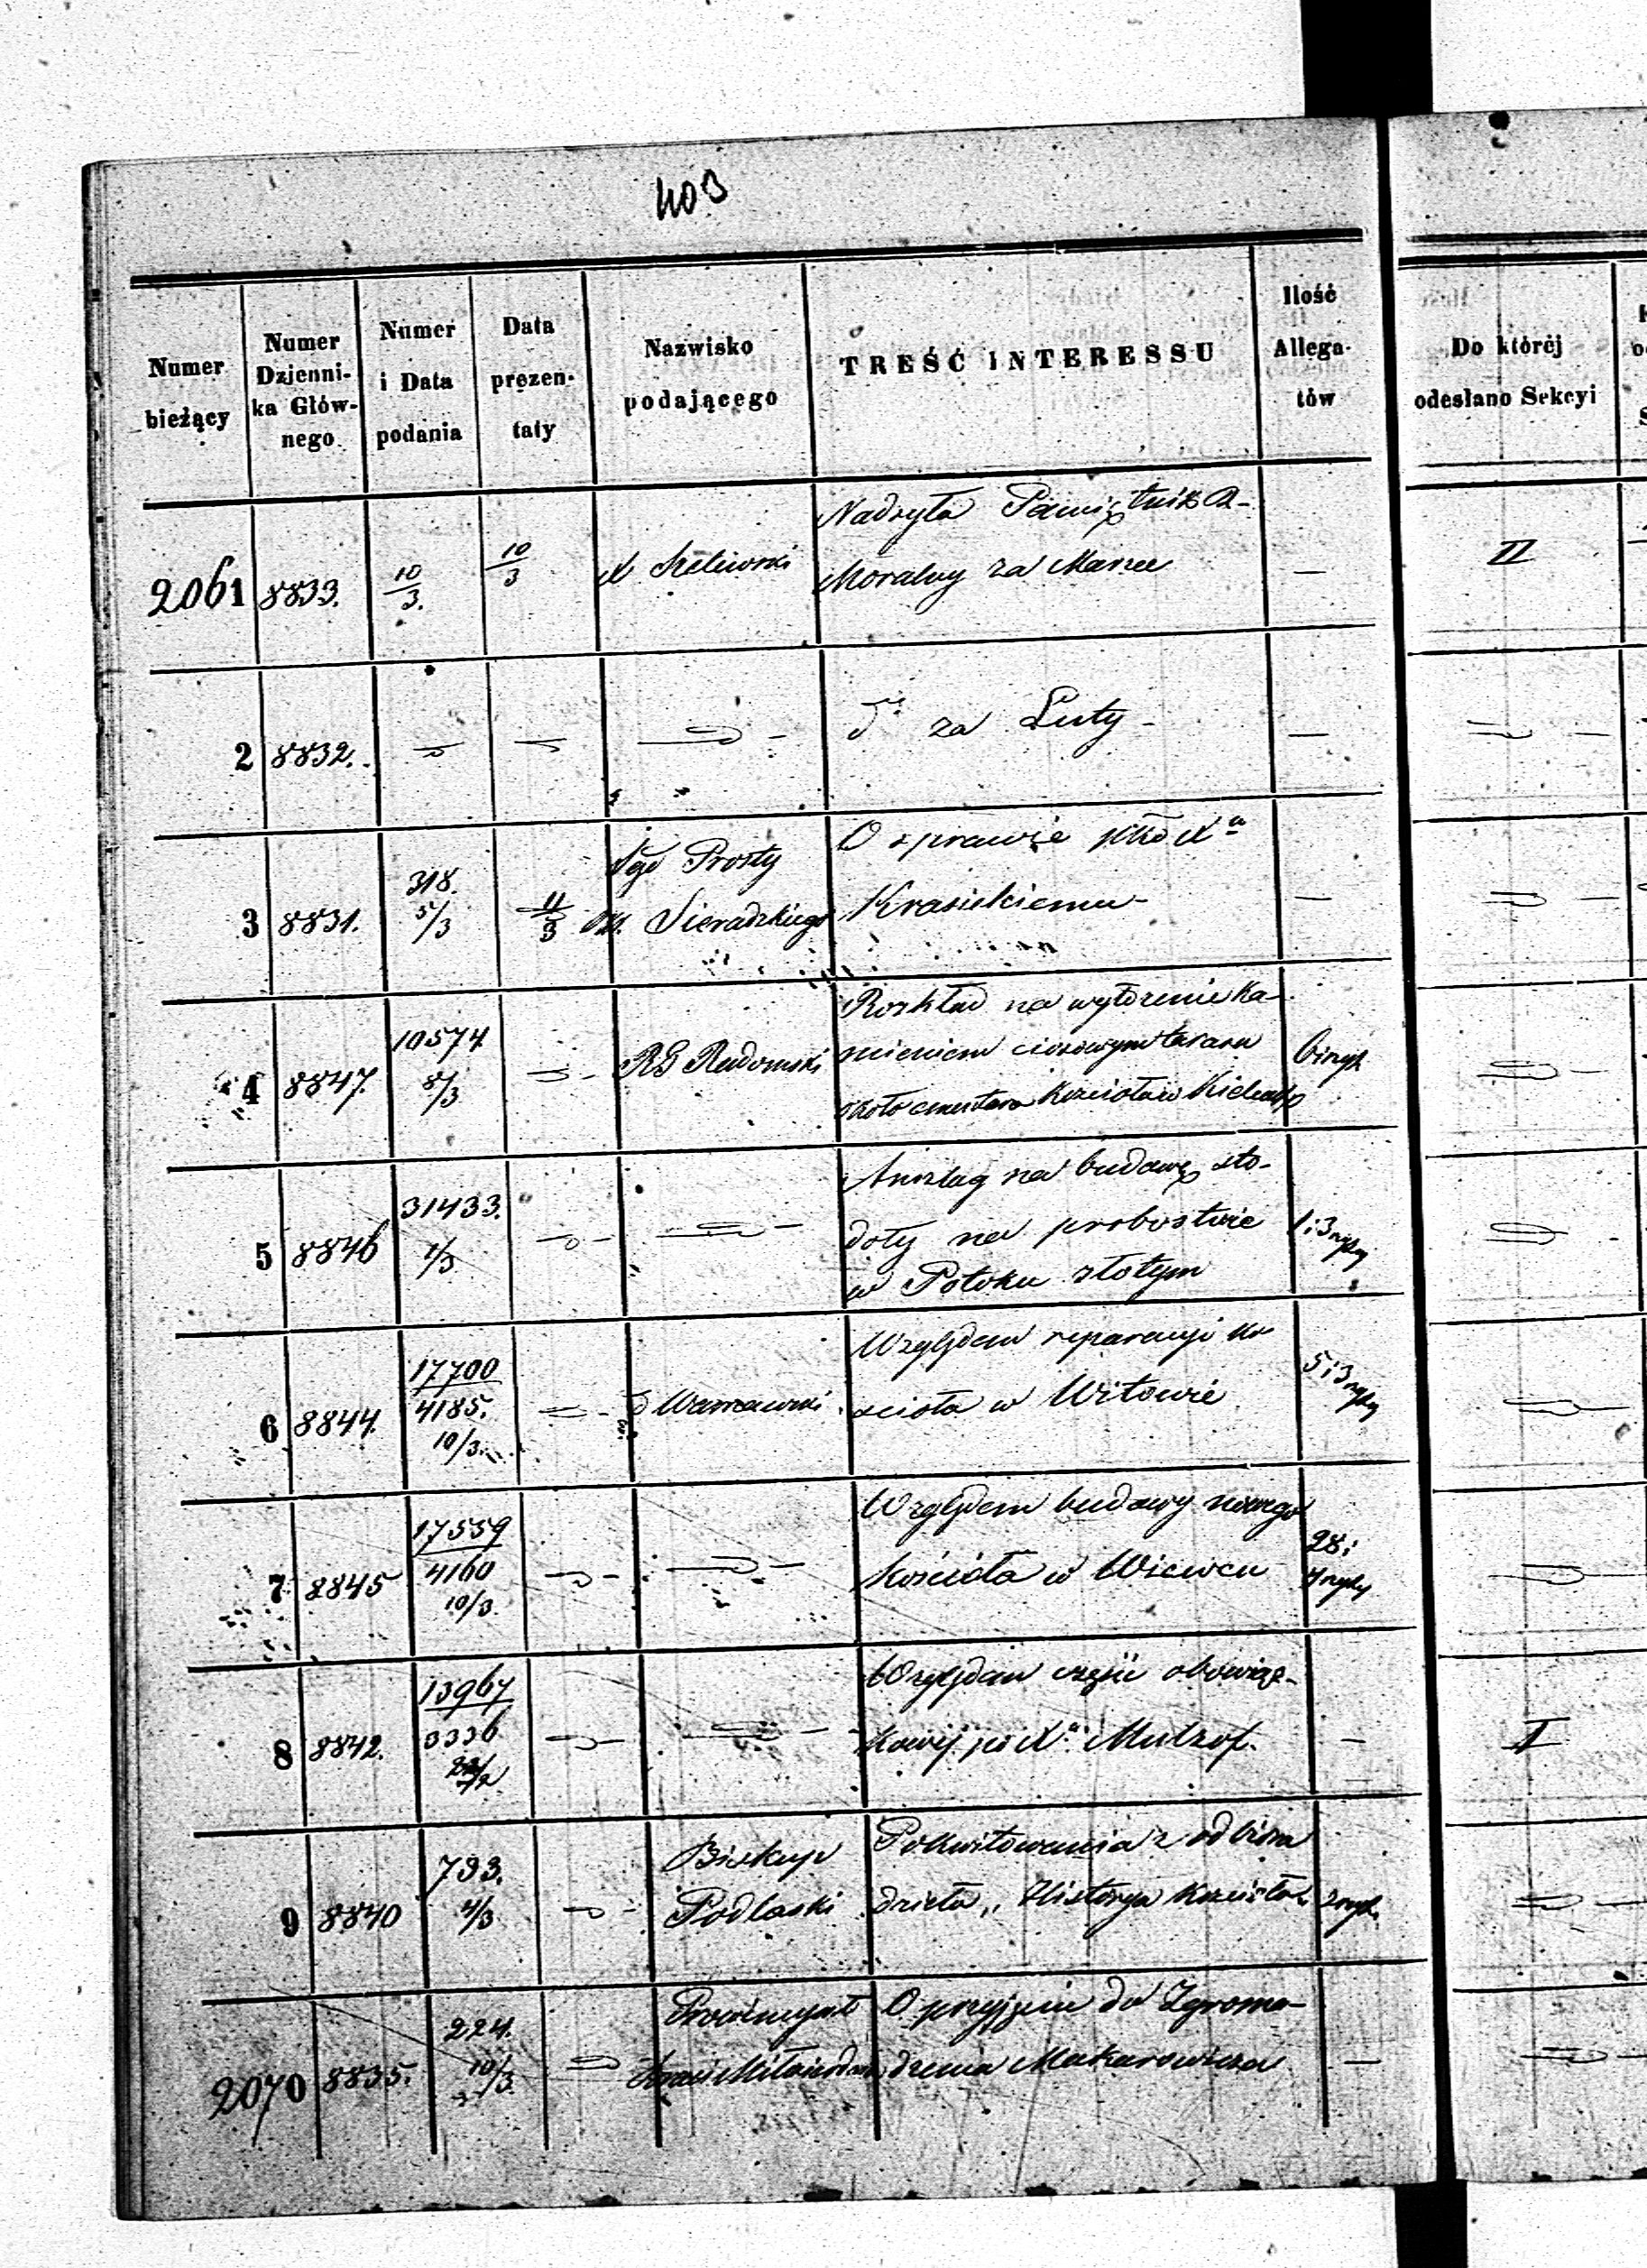 403
Numer bieżący
Numer Dzienni-ka Głów-nego
Numer i Data podania
Data prezen-taty
Nazwisko podającego
TREŚĆ INTERESSU
Ilość Allega-tów
Do któréj odesłano Sekcyi
2061 8833. 10/3. 10/3 X
Nadsyła Pamiętnik R.
Moralny za Marzec — II
2 8832. za Luty — —
3 8831. 318. 5/3 11/3 Prosty
Sieradzkiego
O sprawie
Krasickiemu —
4 8847. 10574 8/3 RG Radomski
Rozkład na wyłożenie ka-
mieniem ciosowym tarasu
około cmentarza Kościoła w Kielcach
5 8846 31433. 1/3
Anszlag na budowę sto-
doły na probostwie
w Potoku złotym
1 i 3
6 8844. 17700 4185. 10/3. Warszawski
Względem reparacyi ko
ścioła w Witowie
5 i 3
7 8845 17559 4160 10/3.
Względem budowy nowego
Kościoła w Wiewcu
28 i
8 8842. 13967 3336
Względem części obowiąz-
kowej po — I
9 8840 793. 4/3
Biskup
Podlaski
Pokwitowania z odbioru
dzieła „Historya Kościoła
2070 8835. 224. 10/3
O przyjęciu do Zgroma-
dzenia Makarowicza —